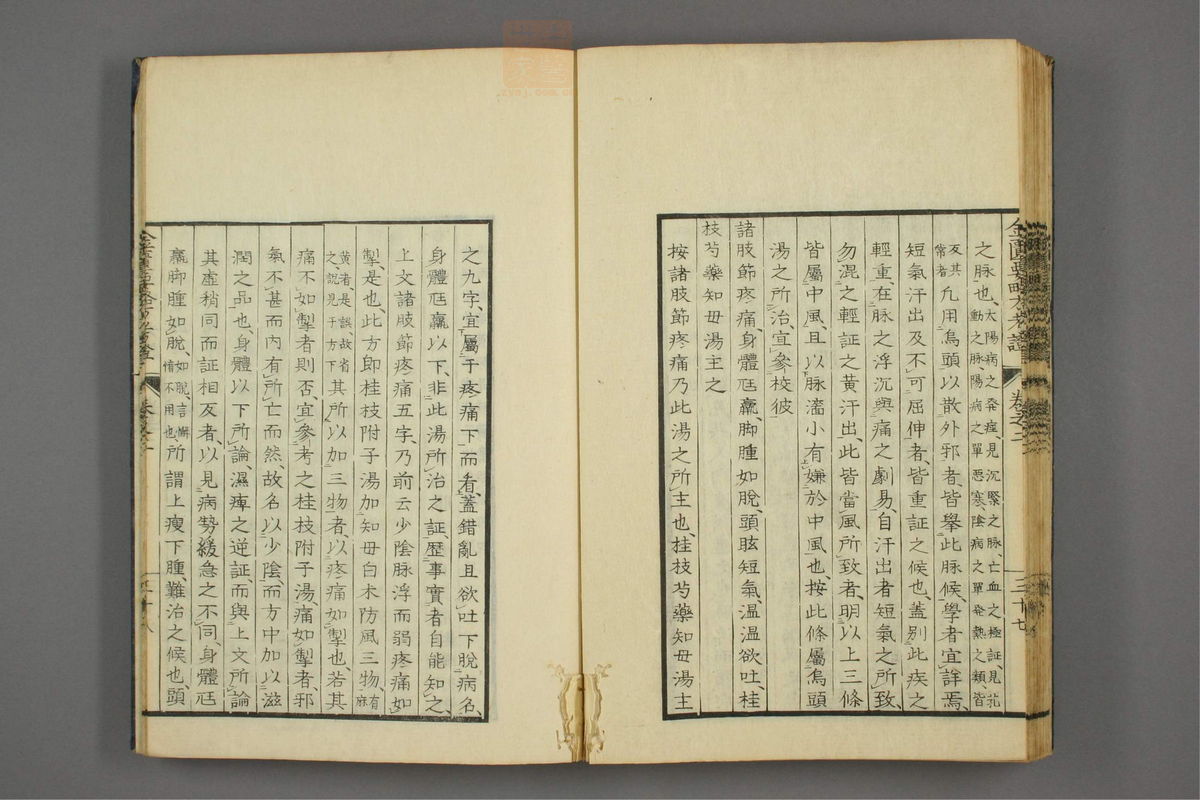 之脉也、太陽病之発痙、見沉緊之脉、亡血之極証、見芤動之脉、陽病之單惡寒、陰病之單発熱之類、皆
反其常者凢用烏頭以散外邪者、皆擧此脉候、學者宜詳焉、
短氣汗出及不可屈伸者、皆重証之候也、蓋別此疾之
輕重、在脉之浮沉與痛之劇易、自汗出者短氣之所致、
勿混之輕証之黄汗出、此皆當風所致者、明以上三條
皆屬中風、且以脉濇小有嫌於中風也、按此條屬烏頭
湯之所治、宜參校彼
諸肢節疼痛、身體尫羸、脚腫如脫、頭眩短氣、温温欲吐、桂
枝芍藥知毋湯主之
按諸肢節疼痛乃此湯之所主也、桂枝芍藥知毋湯主
金匱要略方
卷之三
三十七
之九字、宜屬于疼痛下而看、蓋錯亂且欲吐下脫病名、
身體尫羸以下、非此湯所治之証、歴事實者自能知之、
上文諸肢節疼痛五字、乃前云少陰脉浮而弱疼痛如
掣、是也、此方即桂枝附子湯加知毋白术防風三物、有麻
黄者、是誤故省之、説見于方下其所以加三物者、以疼痛如掣也、若其
痛不如掣者則否、宜參考之桂枝附子湯痛如掣者、邪
氣不甚而内有所亡而然、故名以少陰、而方中加以滋
潤之品也、身體以下所論、濕痺之逆証、而與上文所論
其虚稍同而証相反者、以見病勢緩急之不同、身體尫
羸脚腫如脫、如脫、言懈惰不用也所謂上瘦下腫、難治之候也、頭